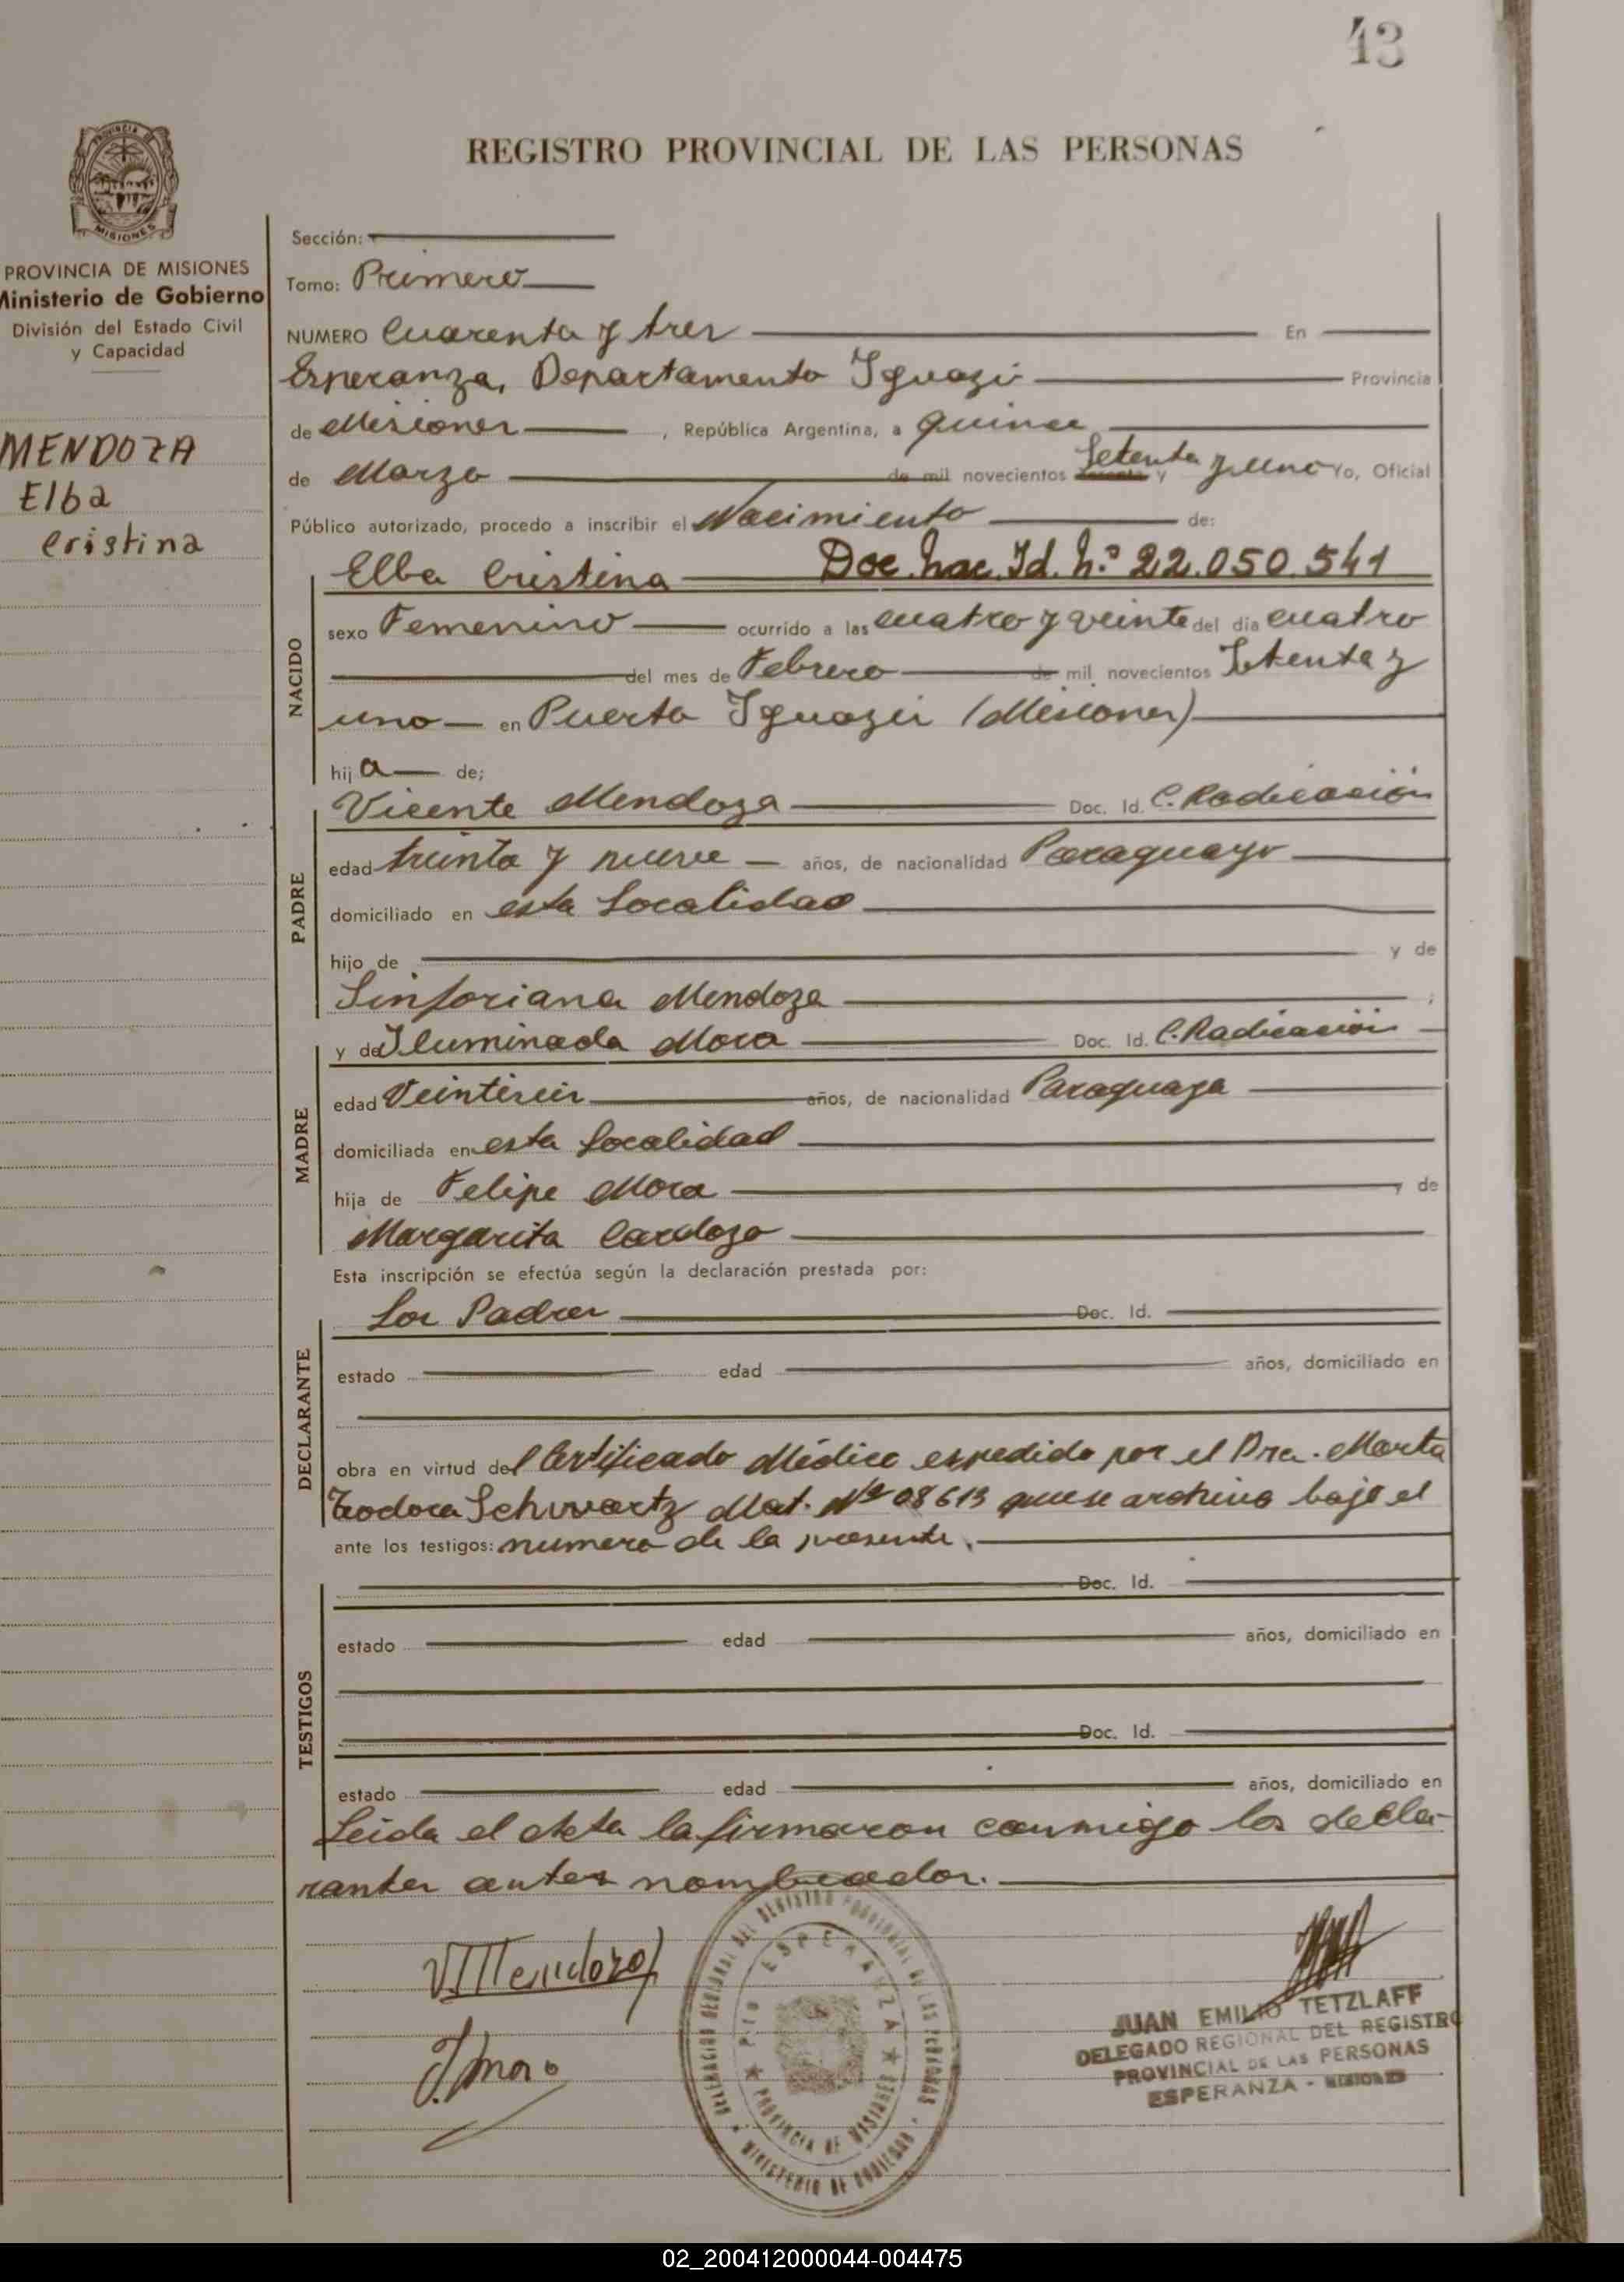 43
REGISTRO PROVINCIAL DE LAS PERSONAS
PROVINCIA DE MISIONES
PROVINCIA DE MISIONES
Ministerio de Gobierno
División del Estado Civil
y Capacidad
MENDOZA
Elba
Cristina
Sección:
Tomo: Primero
NUMERO Cuarenta y tres En
Esperanza, Departamento Iguazú Provincia
de Misiones , República Argentina, a quince
de Marzo de mil novecientos Setenta y uno Yo, Oficial
Público autorizado, procedo a inscribir el Nacimiento de:
NACIDO
Elba Cristina Doc. Nac. Id. N.º 22.050.541
sexo Femenino ocurrido a las cuatro y veinte del día cuatro
del mes de Febrero de mil novecientos Setenta y
uno en Puerto Iguazú (Misiones)
hij a de;
PADRE
Vicente Mendoza Doc. Id. C. Radicación
edad treinta y nueve años, de nacionalidad Paraguayo
domiciliado en esta Localidad
hijo de y de
Sinforiana Mendoza ;
MADRE
y de Iluminada Mora Doc. Id. C. Radicación
edad Veintiseis años, de nacionalidad Paraguaya
domiciliada en esta Localidad
hija de Felipe Mora y de
Margarita Cardozo
Esta inscripción se efectúa según la declaración prestada por:
DECLARANTE
Los Padres Doc. Id.
estado edad años, domiciliado en
obra en virtud del Certificado Médico expedido por el Dra. Marta
Teodora Schwartz Mat. Nº 08613 que se archiva bajo el
ante los testigos: numero de la presente.
TESTIGOS
Doc. Id.
estado edad años, domiciliado en
Doc. Id.
estado edad años, domiciliado en
Leida el Acta la firmaron conmigo los decla-
rantes antes nombrados.
VMendoza
I. Mora
DELEGACION REGIONAL DEL REGISTRO PROVINCIAL DE LAS PERSONAS
PTO ESPERANZA
PROVINCIA DE MISIONES
MINISTERIO DE GOBIERNO
JUAN EMILIO TETZLAFF
DELEGADO REGIONAL DEL REGISTRO
PROVINCIAL DE LAS PERSONAS
ESPERANZA - MISIONES
02_200412000044-004475